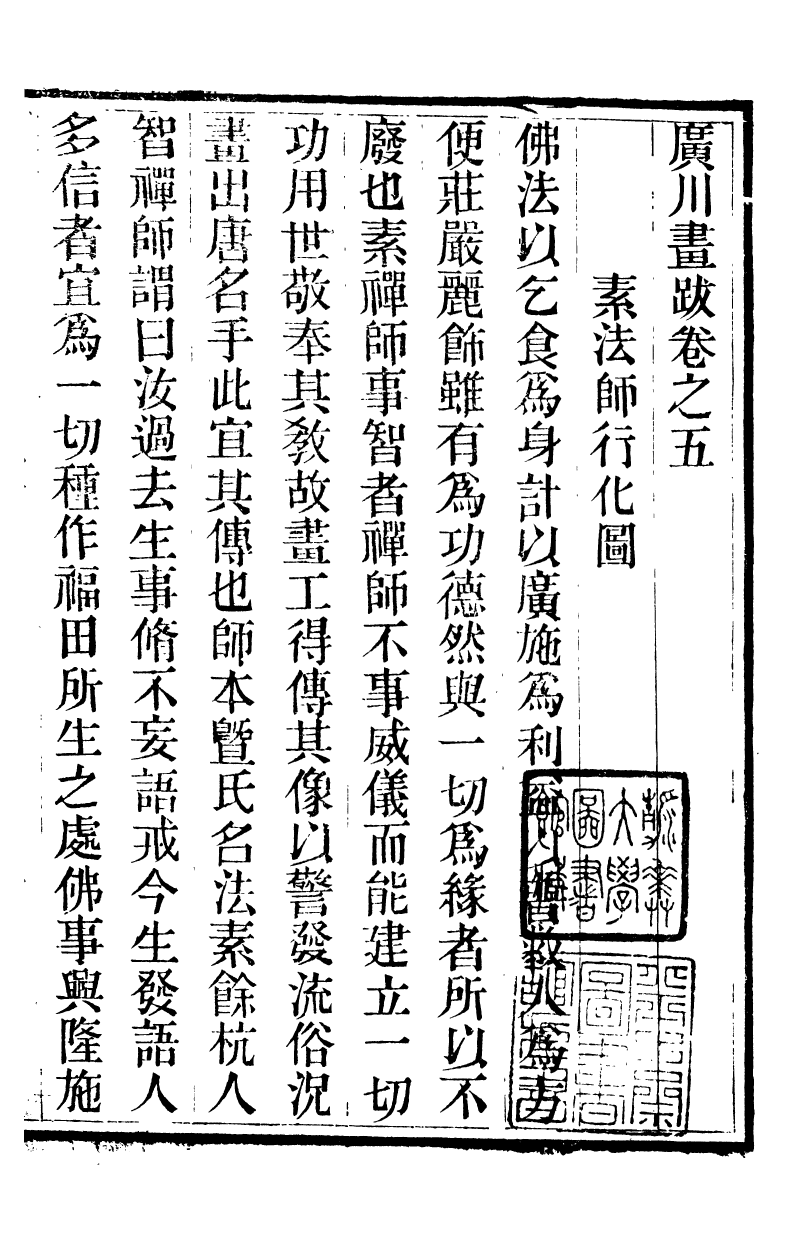 廣川畫跋卷之五
素法師行化圖
佛法以乞食爲身計以廣施爲利益以普救人爲方
便莊嚴麗飾雖有爲功德然與一切爲緣者所以不
廢也素禪師事智者禪師不事威儀而能建立一切
功用世敬奉其敎故畫工得傳其像以警發流俗況
畫出唐名手此宜其傳也師本曁氏名法素餘杭人
智禪師謂曰汝過去生事脩不妄語戒今生發語人
多信者宜爲一切種作福田所生之處佛事興隆施
大學
圖書